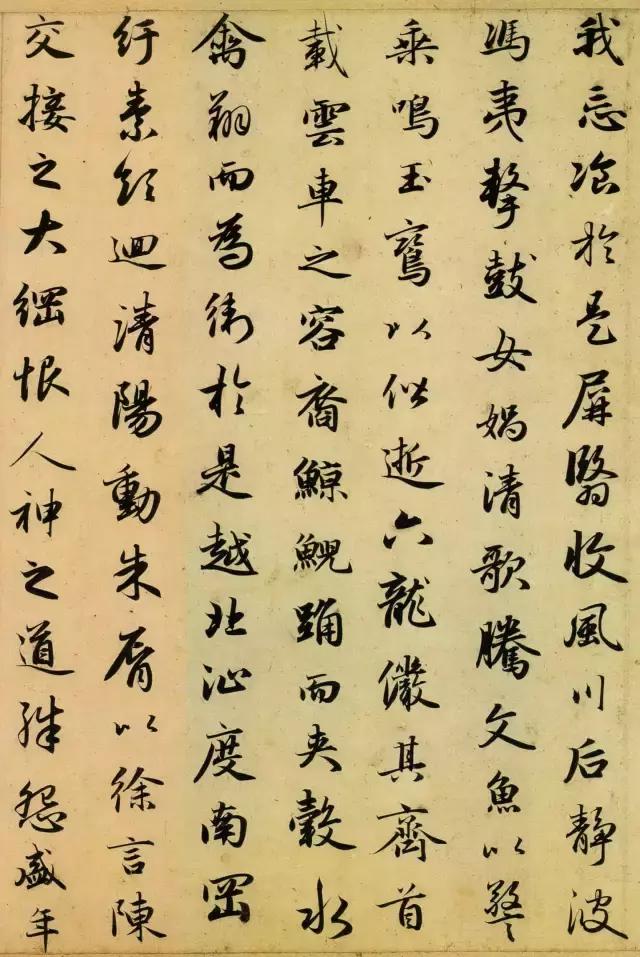 我忘飡於是屏翳收風川后靜波
馮夷擊鼓女媧清歌騰文魚以警
乘鳴玉鸞以偕逝六龍儼其齊首
載雲車之容裔鯨鯢踊而夾轂水
禽翔而為衛於是越北沚度南岡
紆素領迴清陽動朱脣以徐言陳
交接之大綱恨人神之道殊怨盛年